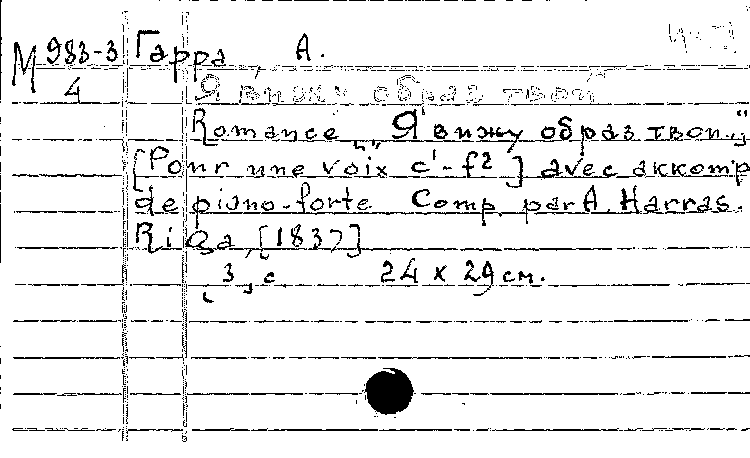 М 983-3 Гарра, А.
4
Я вижу образ твой
Romance „Я вижу образ твой..."
[Pour une voix c'-f2] avec akkomp
de piano-forte Comp. par A. Harras.
Riga, [1837]
[3] с. 24 x 29 см.